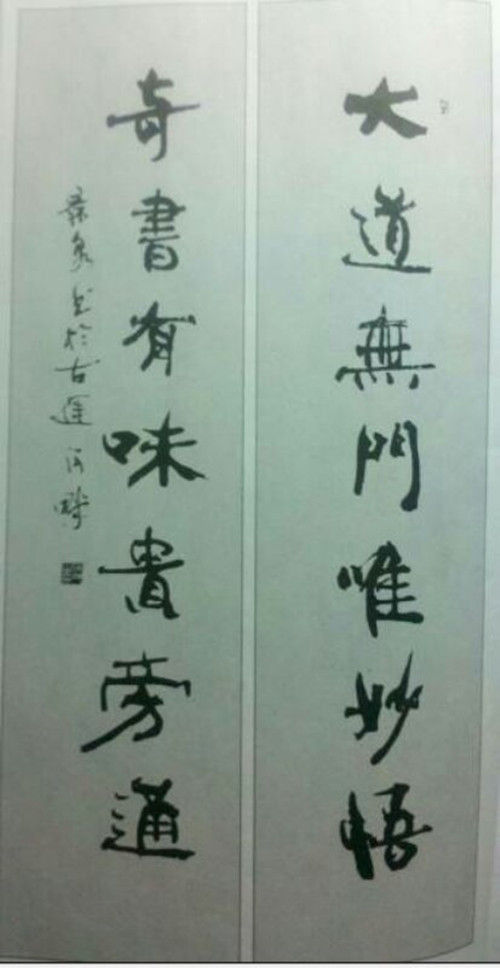 大道無門唯妙悟
奇書有味貴旁通
書於古運河畔